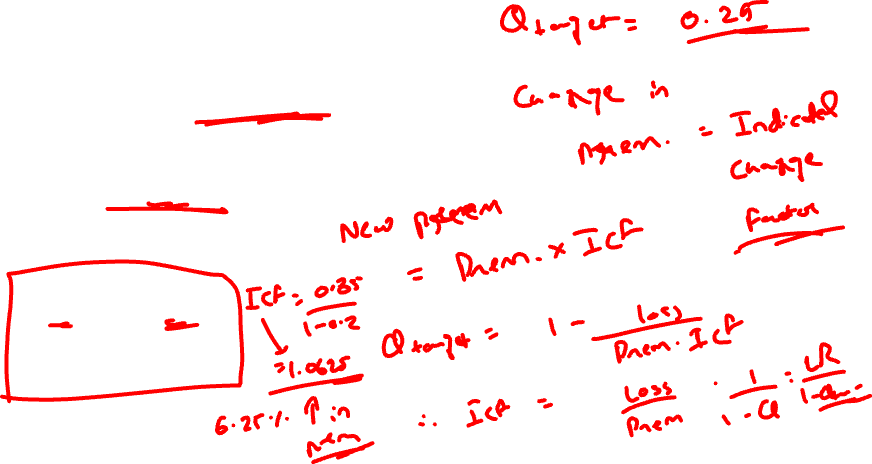 Q target = 0.25
Change in
prem. = Indicated
change
factor
New prem
= Prem. × ICF
ICF = 0.85 / 1-0.2
= 1.0625
Q target = 1 - Loss / Prem. ICF
6.25% ↑ in
prem
∴ ICF = Loss / Prem · 1 / 1-Q = LR / 1-Q